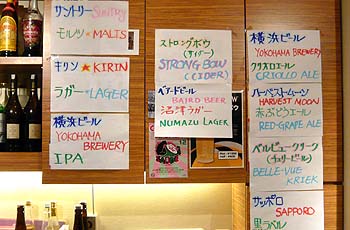 サントリー Suntory
モルツ ★ MALTS
キリン ★ KIRIN
ラガー ★ LAGER
横浜ビール
YOKOHAMA
BREWERY
IPA
ストロングボウ
(サイダー)
STRONG BOW
(CIDER)
ベアードビール
BAIRD BEER
沼津ラガー
NUMAZU LAGER
横浜ビール
YOKOHAMA BREWERY
クリオロエール
CRIOLLO ALE
ハーベスト・ムーン
HARVEST MOON
赤ぶどうエール
RED-GRAPE ALE
ベルビュークリーク
(チェリービール)
BELLE-VUE
KRIEK
サッポロ
SAPPORO
黒ラベル